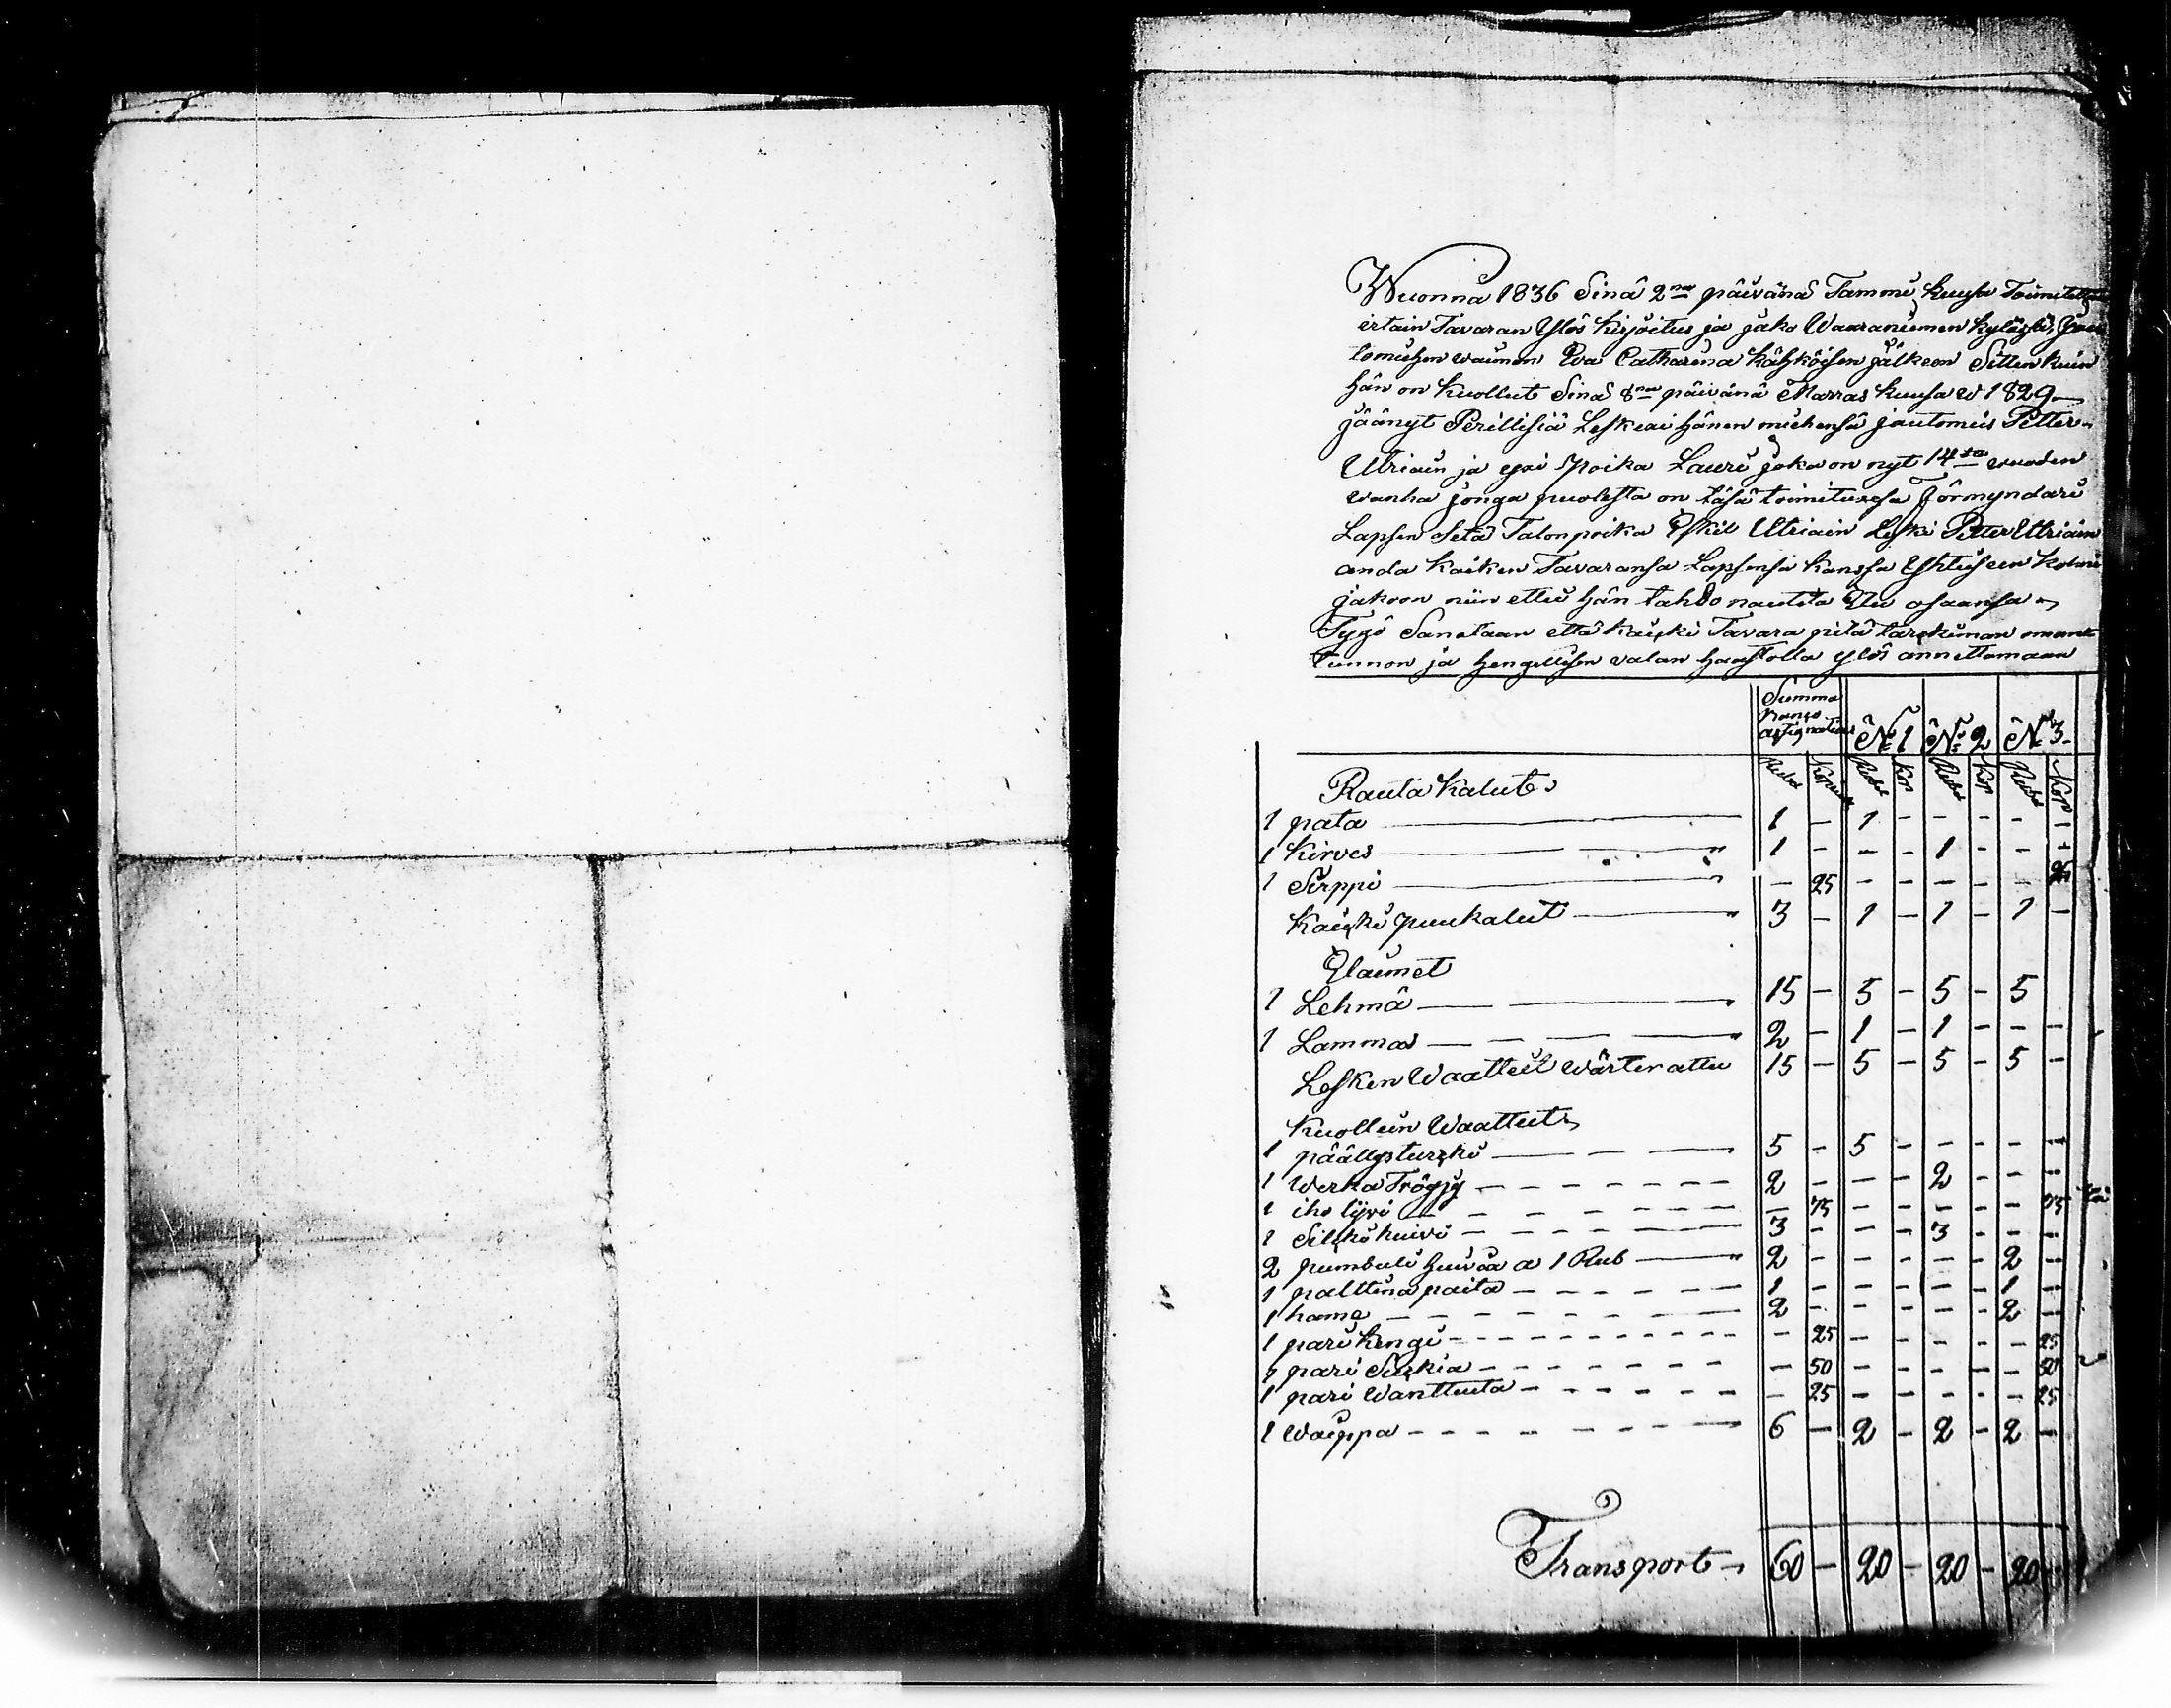 Wuonna 1836 Sinä 2na päivänä Tammi kuusa Toimitettin
irtain Tavaran Ylös kirjoitus ja jako Waaraniemen kylässä, Jau
lomiehen waimon Eva Catharina kähköisen jälkeen Sitten kuin
hän on kuollut Sinä 8na päivänä Marras kuusa w 1829
jäänyt Perillisiä Leskexi hänen miehensä jautomies Petter
Utriain ja yxi Poika Lauri joka on nyt 14ta vuoden
wanha jonga puolesta on täsä toimituxesa Förmyndari
Lapsen setä Talonpoika Eskil Utriain Leski Petter Utriain
anda kaiken Tavaransa Lapsensa kanssa Yhteiseen kolmi
jakoon niin että hän tahdo nautita Etu osaansa
Sanotaan että kaikki Tavara pitä tarkiman oman
tunnon ja hengellisen valan haastolla ylös annettamaan
Summa
Banco
assignationi No 1 No 2 No 3
Rauta kalut Rubl Kopeek Rubl Kop Rubl Kop Rubl Kop
1 pata 1 - 1 - - - - -
1 kirves 1 - - - 1 - - -
1 Sirppi - 25 - - - - - 25
kaikki puukalut 3 - 1 - 1 - 1 -
Elaimet
1 Lehmä 15 - 5 - 5 - 5
1 Lammas 2 - 1 - 1 - - -
Lesken Waatteet wärterattu 15 - 5 - 5 - 5 -
kuolluin Waatteet
1 päällysturkki 5 - 5 - - - - -
1 Werka Tröyjy 2 - - - 2 - - -
1 iho lijvi - 75 - - - - - 75
1 Silkki huivi 3 - - - 3 - - -
2 pumbuli huivia a 1 Rub 2 - - - - - 2 -
1 palttina paita 1 - - - - - 1 -
1 hame 2 - - - - - 2 -
1 pari kengi - 25 - - - - - 25
1 pari Sukkia - 50 - - - - - 50
1 pari Wanttuuta - 25 - - - - - 25
1 Waippa 6 - 2 - 2 - 2 -
Transport 60 - 20 - 20 - 20